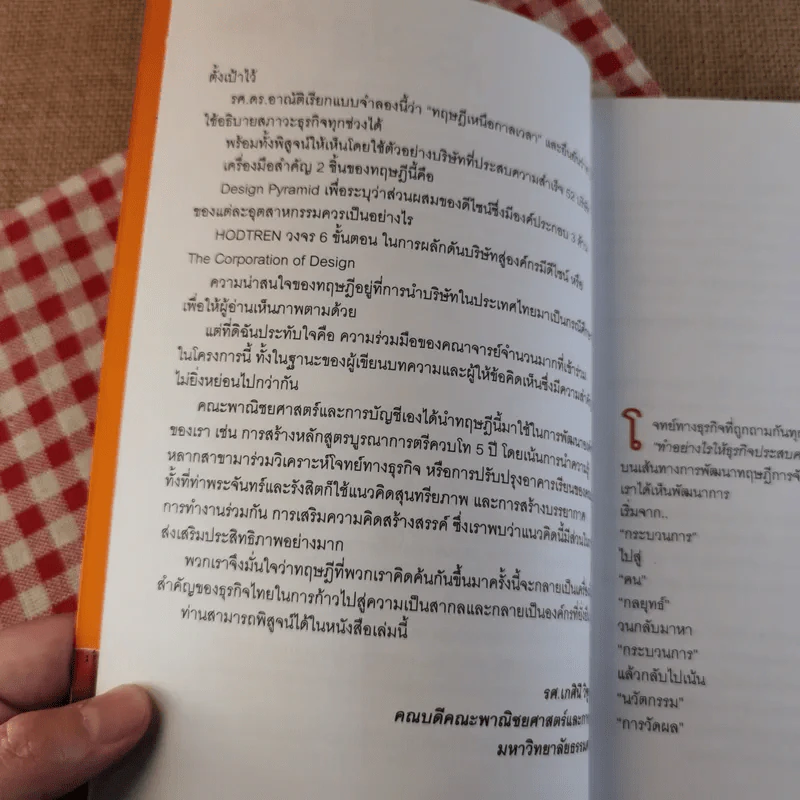 ตั้งเป้าไว้
รศ.ดร.อาณัติเรียกแบบจำลองนี้ว่า "ทฤษฎีเหนือกาลเวลา" และยืนยันว่า
ใช้อธิบายสภาวะธุรกิจทุกช่วงได้
พร้อมทั้งพิสูจน์ให้เห็นโดยใช้ตัวอย่างบริษัทที่ประสบความสำเร็จ 52
เครื่องมือสำคัญ 2 ชิ้นของทฤษฎีนี้คือ
Design Pyramid เพื่อระบุว่าส่วนผสมของดีไซน์ซึ่งมีองค์ประกอบ 3 ด้าน
ของแต่ละอุตสาหกรรมควรเป็นอย่างไร
HODTREN วงจร 6 ขั้นตอน ในการผลักดันบริษัทสู่องค์กรมีดีไซน์ หรือ
The Corporation of Design
ความน่าสนใจของทฤษฎีอยู่ที่การนำบริษัทในประเทศไทยมาเป็นกรณี
เพื่อให้ผู้อ่านเห็นภาพตามด้วย
แต่ที่ดิฉันประทับใจคือ ความร่วมมือของคณาจารย์จำนวนมากที่เข้าร่วม
ในโครงการนี้ ทั้งในฐานะของผู้เขียนบทความและผู้ให้ข้อคิดเห็นซึ่งมีความสำคัญ
ไม่ยิ่งหย่อนไปกว่ากัน
คณะพาณิชยศาสตร์และการบัญชีเองได้นำทฤษฎีนี้มาใช้ในการพัฒนา
ของเรา เช่น การสร้างหลักสูตรบูรณาการตรีควบโท 5 ปี โดยเน้นการนำความรู้
หลากสาขามาร่วมวิเคราะห์โจทย์ทางธุรกิจ หรือการปรับปรุงอาคารเรียนของ
ทั้งที่ท่าพระจันทร์และรังสิตก็ใช้แนวคิดสุนทรียภาพ และการสร้างบรรยากาศ
การทำงานร่วมกัน การเสริมความคิดสร้างสรรค์ ซึ่งเราพบว่าแนวคิดนี้มีส่วน
ส่งเสริมประสิทธิภาพอย่างมาก
พวกเราจึงมั่นใจว่าทฤษฎีที่พวกเราคิดค้นกันขึ้นมาครั้งนี้จะกลายเป็น
สำคัญของธุรกิจไทยในการก้าวไปสู่ความเป็นสากลและกลายเป็นองค์กรที่
ท่านสามารถพิสูจน์ได้ในหนังสือเล่มนี้
รศ.เกศินี
คณบดีคณะพาณิชยศาสตร์และ
มหาวิทยาลัย
โจทย์ทางธุรกิจที่ถูกถามกัน
"ทำอย่างไรให้ธุรกิจ
บนเส้นทางการพัฒนาทฤษฎี
เราได้เห็นพัฒนาการ
เริ่มจาก..
"กระบวนการ"
ไปสู่
"คน"
"กลยุทธ์"
วนกลับมาหา
"กระบวนการ"
แล้วกลับไปเน้น
"นวัตกรรม"
"การวัดผล"